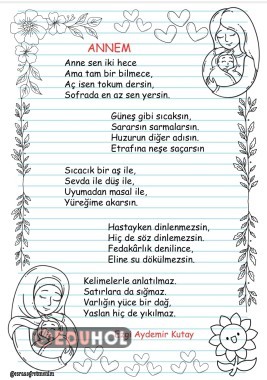 ANNEM
Anne sen iki hece
Ama tam bir bilmece,
Aç isen tokum dersin,
Sofrada en az sen yersin.
Güneş gibi sıcaksın,
Sararsın sarmalarsın.
Huzurun diğer adısın.
Etrafına neşe saçarsın
Sıcacık bir aş ile,
Sevda ile düş ile,
Uyumadan masal ile,
Yüreğime akarsın.
Hastayken dinlenmezsin,
Hiç de söz dinlemezsin.
Fedakârlık denilince,
Eline su dökülmezsin.
Kelimelerle anlatılmaz.
Satırlara da sığmaz.
Varlığın yüce bir dağ,
Yaslan hiç de yıkılmaz.
Aydemir Kutay
EDUHOL